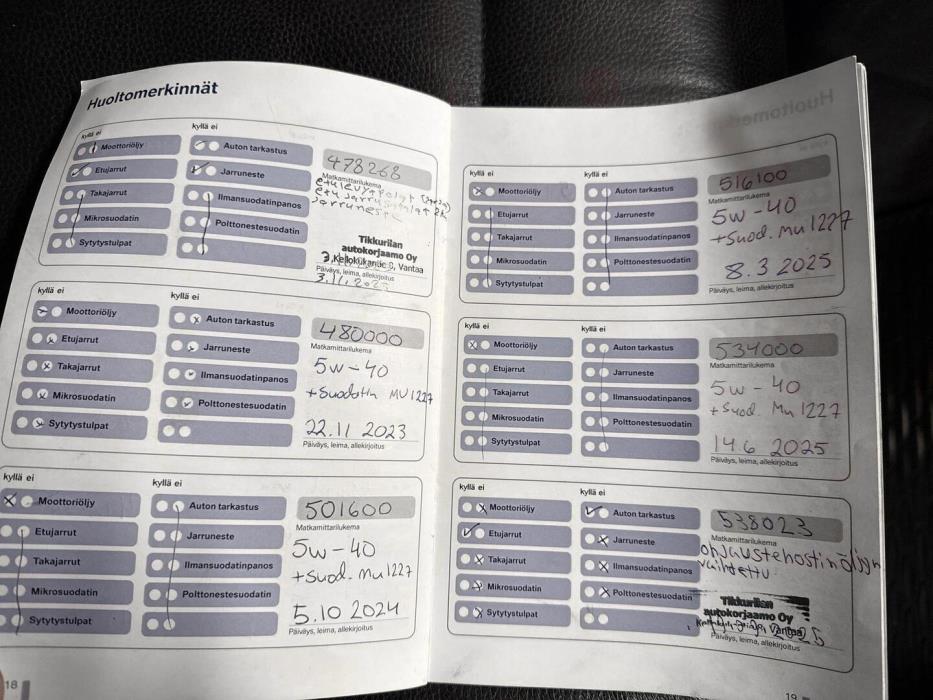 Huoltomerkinnät
kyllä ei
Moottoriöljy
Etujarrut
Takajarrut
Mikrosuodatin
Sytytystulpat
kyllä ei
Auton tarkastus
Jarruneste
Ilmansuodatinpanos
Polttonestesuodatin
478268
Matkamittarilukema
Jarruneste
Tikkurilan
autokorjaamo Oy
Vantaa
Päiväys, leima, allekirjoitus
kyllä ei
Moottoriöljy
Etujarrut
Takajarrut
Mikrosuodatin
Sytytystulpat
kyllä ei
Auton tarkastus
Jarruneste
Ilmansuodatinpanos
Polttonestesuodatin
480000
Matkamittarilukema
5w-40
+Suodatin MU1227
22.11 2023
Päiväys, leima, allekirjoitus
kyllä ei
Moottoriöljy
Etujarrut
Takajarrut
Mikrosuodatin
Sytytystulpat
kyllä ei
Auton tarkastus
Jarruneste
Ilmansuodatinpanos
Polttonestesuodatin
501600
Matkamittarilukema
5w-40
+Suod. Mu1227
5.10 2024
Päiväys, leima, allekirjoitus
18
kyllä ei
Moottoriöljy
Etujarrut
Takajarrut
Mikrosuodatin
Sytytystulpat
kyllä ei
Auton tarkastus
Jarruneste
Ilmansuodatinpanos
Polttonestesuodatin
516100
Matkamittarilukema
5w-40
+Suod. Mu1227
8.3 2025
Päiväys, leima, allekirjoitus
kyllä ei
Moottoriöljy
Etujarrut
Takajarrut
Mikrosuodatin
Sytytystulpat
kyllä ei
Auton tarkastus
Jarruneste
Ilmansuodatinpanos
Polttonestesuodatin
534000
Matkamittarilukema
5w-40
+Suod. Mu1227
14.6 2025
Päiväys, leima, allekirjoitus
kyllä ei
Moottoriöljy
Etujarrut
Takajarrut
Mikrosuodatin
Sytytystulpat
kyllä ei
Auton tarkastus
Jarruneste
Ilmansuodatinpanos
Polttonestesuodatin
538023
Matkamittarilukema
ohjaustehostinöljyn
vaihdettu
Tikkurilan
autokorjaamo Oy
Vantaa
Päiväys, leima, allekirjoitus
19